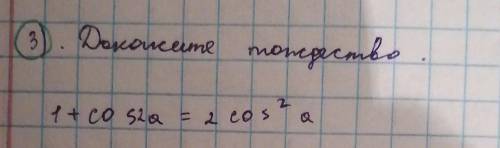 3). Докажите тождество.
1 + cos2a = 2 cos² a